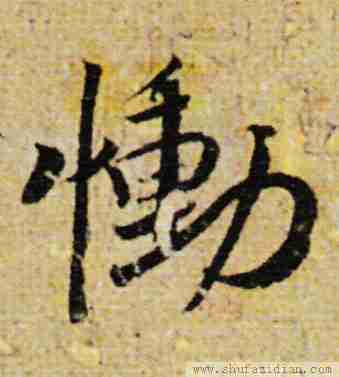 慟
www.shufazidian.com